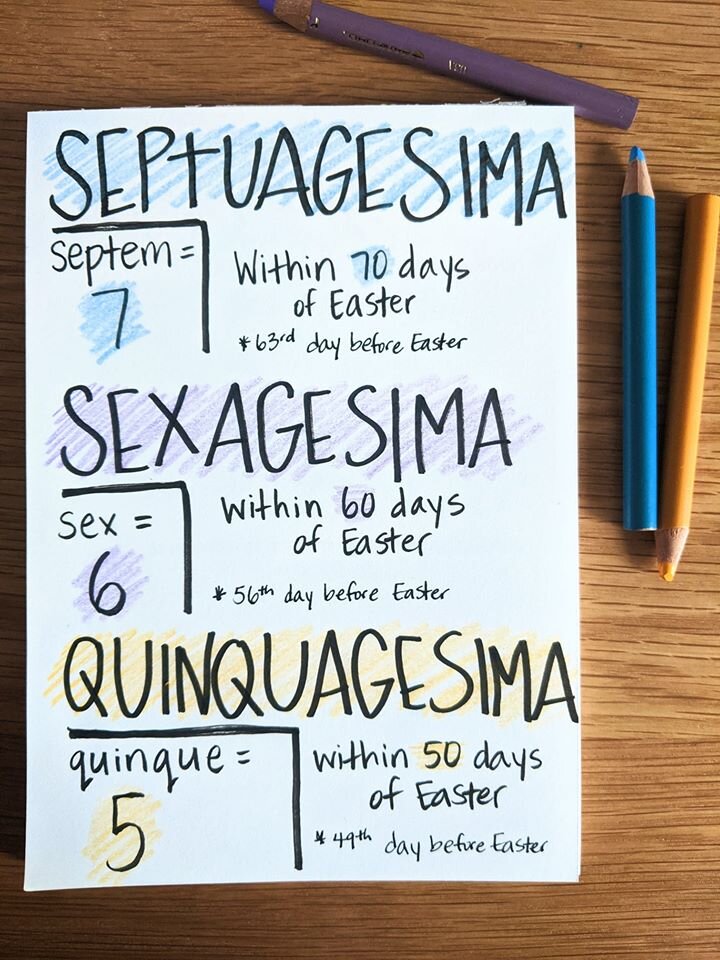 SEPTUAGESIMA
septem =
7
Within 70 days
of Easter
* 63rd day before Easter
SEXAGESIMA
sex =
6
within 60 days
of Easter
* 56th day before Easter
QUINQUAGESIMA
quinque =
5
within 50 days
of Easter
* 49th day before Easter